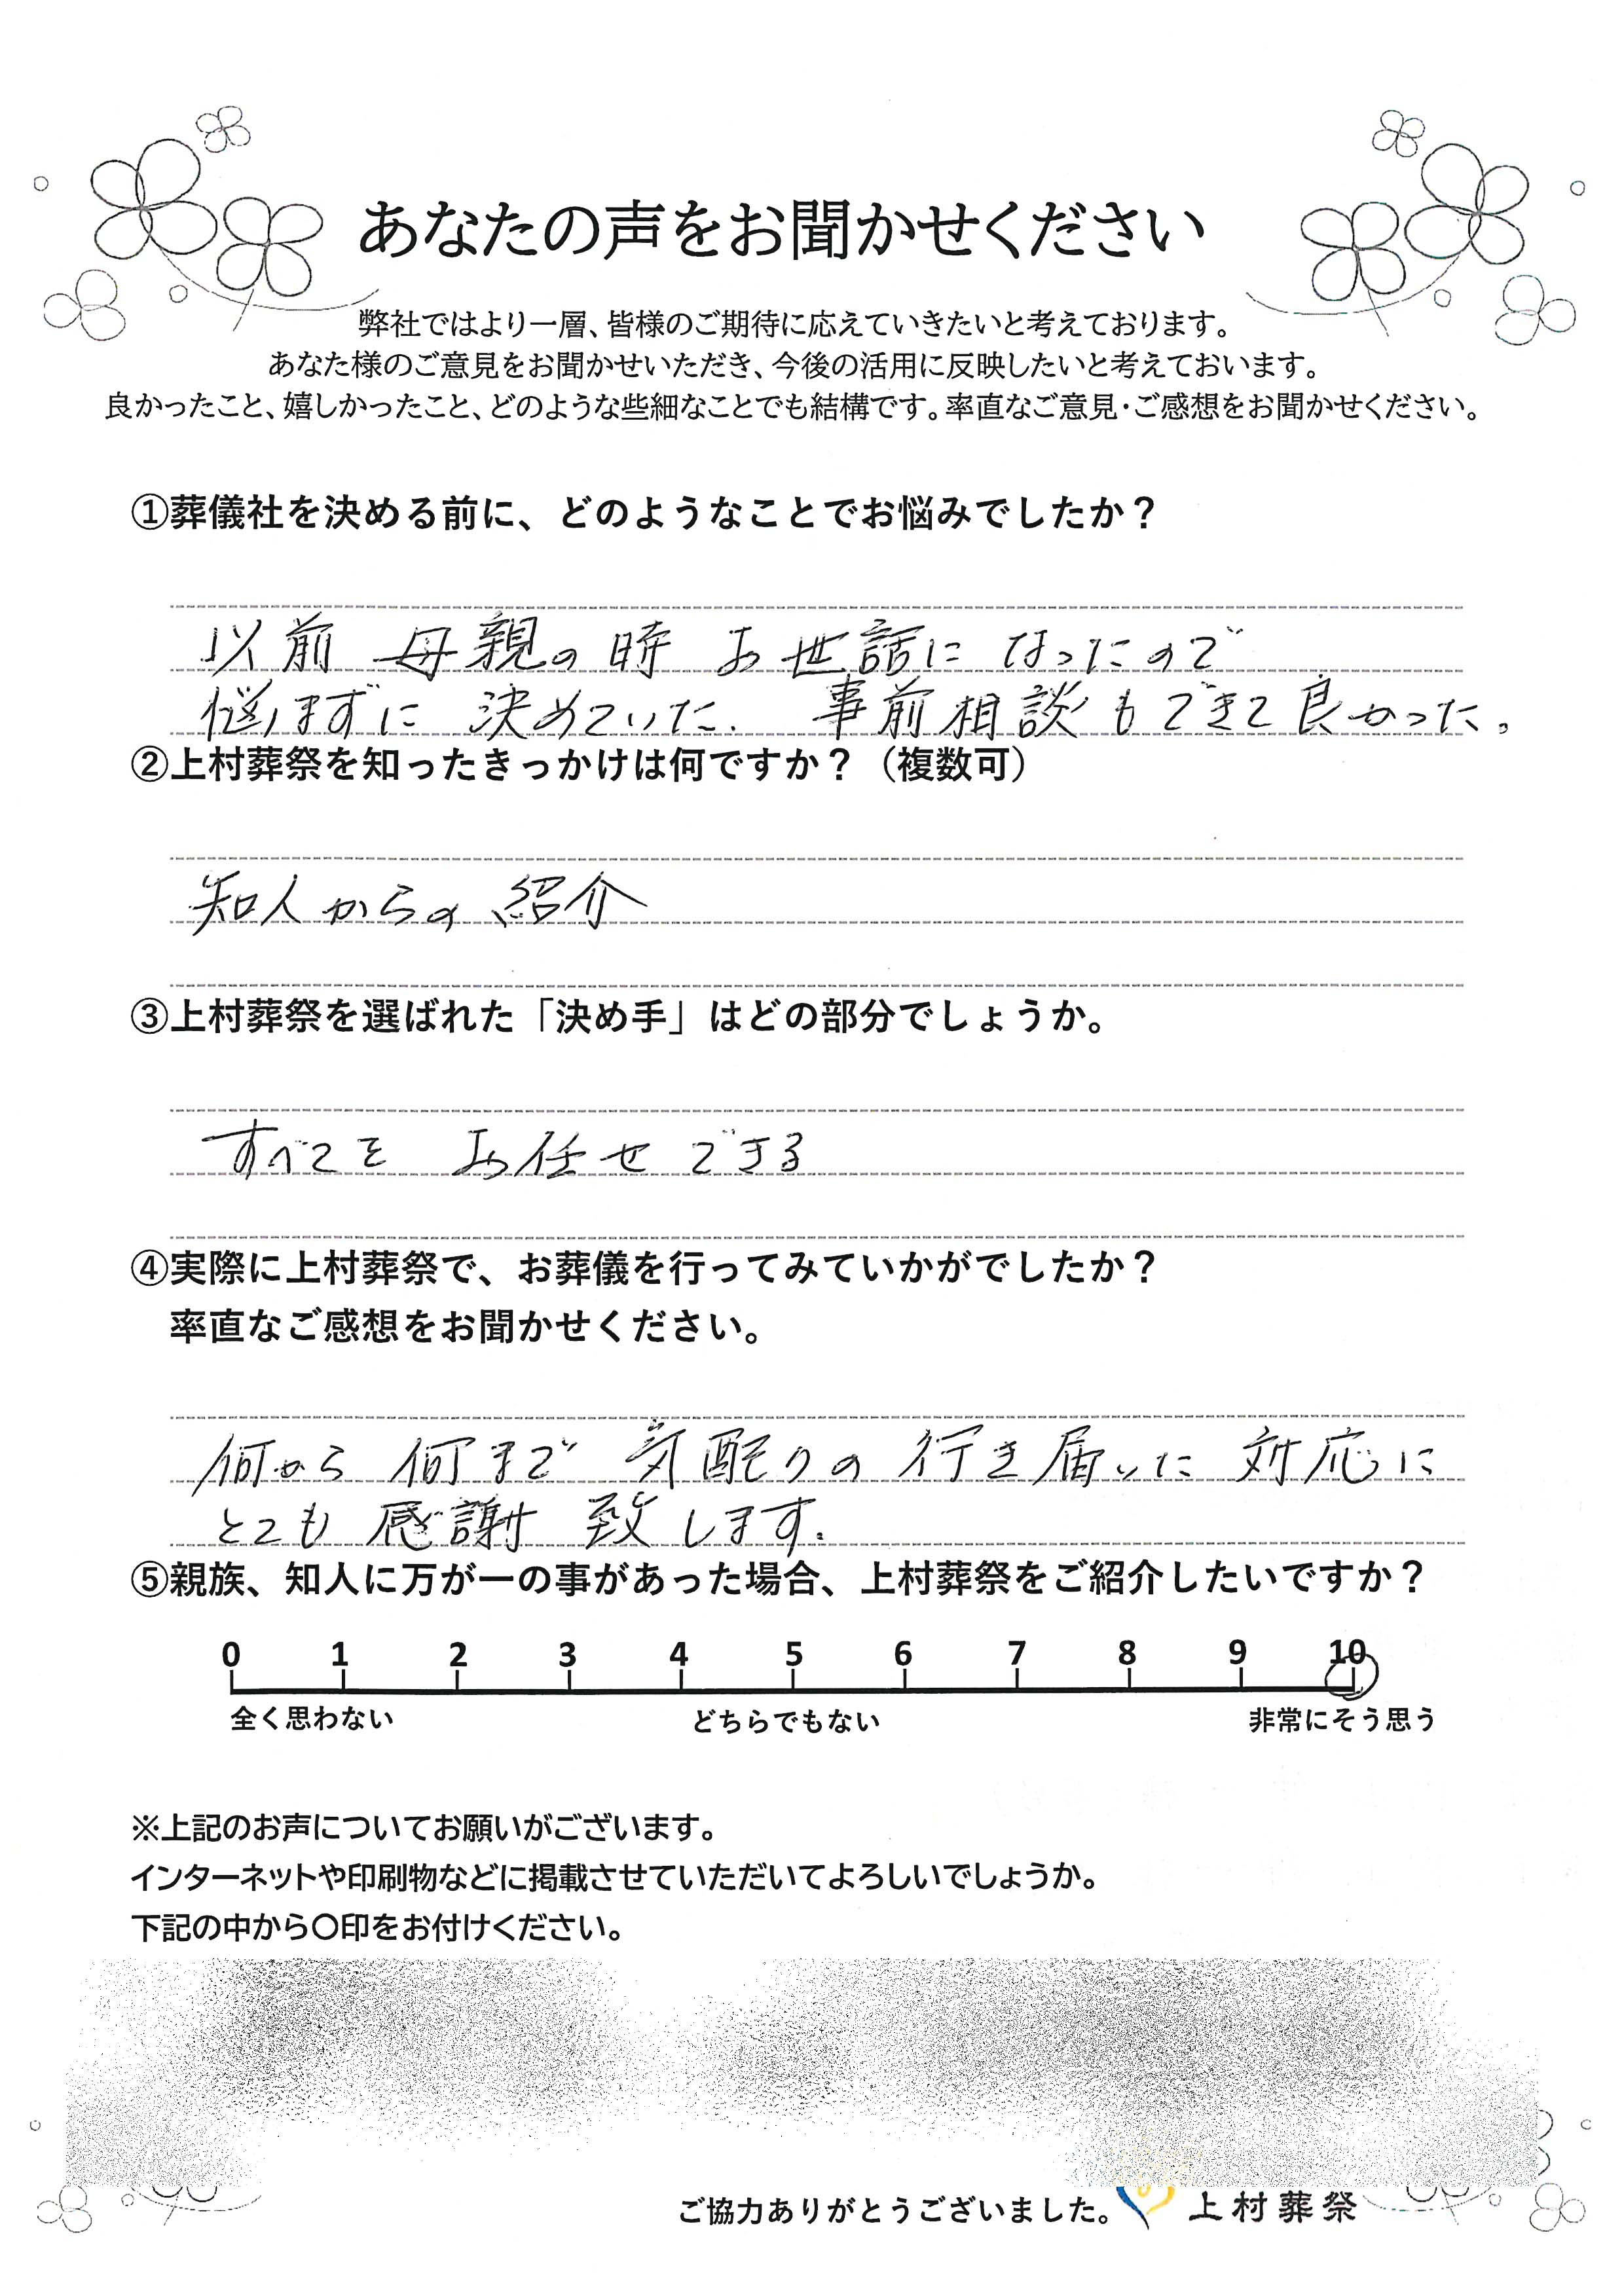 あなたの声をお聞かせください
弊社ではより一層、皆様のご期待に応えていきたいと考えております。
あなた様のご意見をお聞かせいただき、今後の活用に反映したいと考えておいます。
良かったこと、嬉しかったこと、どのような些細なことでも結構です。率直なご意見・ご感想をお聞かせください。
①葬儀社を決める前に、どのようなことでお悩みでしたか？
以前 母親の時 お世話に なったので
悩まずに 決めていた. 事前相談もできて良かった。
②上村葬祭を知ったきっかけは何ですか？（複数可）
知人からの紹介
③上村葬祭を選ばれた「決め手」はどの部分でしょうか。
すべてを お任せできる
④実際に上村葬祭で、お葬儀を行ってみていかがでしたか？
率直なご感想をお聞かせください。
何から 何まで 気配りの 行き届いた 対応に
とても 感謝 致します.
⑤親族、知人に万が一の事があった場合、上村葬祭をご紹介したいですか？
0 1 2 3 4 5 6 7 8 9 10
全く思わない どちらでもない 非常にそう思う
※上記のお声についてお願いがございます。
インターネットや印刷物などに掲載させていただいてよろしいでしょうか。
下記の中から〇印をお付けください。
ご協力ありがとうございました。 上村葬祭